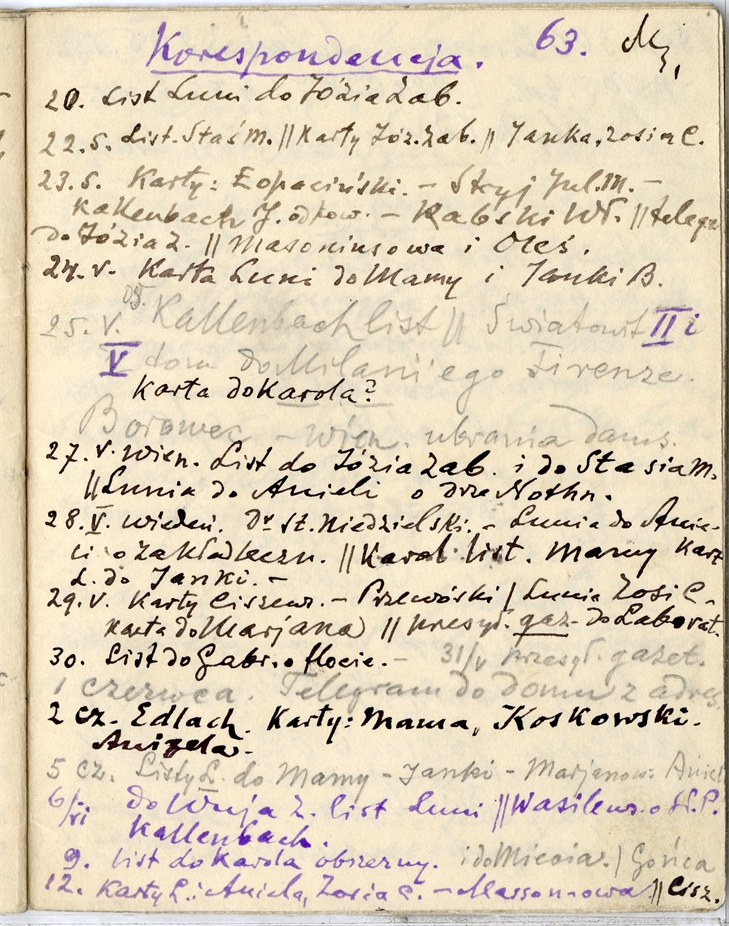 Korespondencja. 63.
20. List Luni do Józia Zab.
22.5. List. Staś M. || Karty Józ. Zab. || Janka, Zosia C.
23.5. Karty: Łopaciński. – Stryj Jul. M. –
Kallenbach J. odpow. – Rabski Wł. ||
do Józia Z. || Masoniusowa i Oleś.
24. V. Karta Luni do Mamy i Janki B.
25. V. Kallenbach list || Światowit II i
V do Firenze.
Karta do Karola?
Borowec – Wien. ubrania dams.
27. V. Wien. List do Józia Zab. i do Stasia M.
|| Lunia do Anieli o Drze Nothn.
28. V. Wiedeń. Dr St. Niedzielski. – Lunia do Anie-
li o Zakład leczn. || Karol list. Mamy Kart
L. do Janki. –
29. V. Karty Ciszew. – Przewóski | Lunia Zosi C.
Karta do Marjana || przesył. gaz. do Laborat.
30. List do Gabr. o flocie. – 31/V przesył. gazet.
1 czerwca. Telegram do domu z adres.
2 cz. Edlach. Karty: Mama, Koskowski.
Aniela.
5 cz. Listy L. do Mamy – Janki – Marjanow. Aniel
6/VI do Wuja Z. list Luni || Wasilew. o
Kallenbach.
9. list do Karola obszerny. | Gońca
12. Karty L. i Aniela, Zosia C. – Massoniusowa || Cisz.